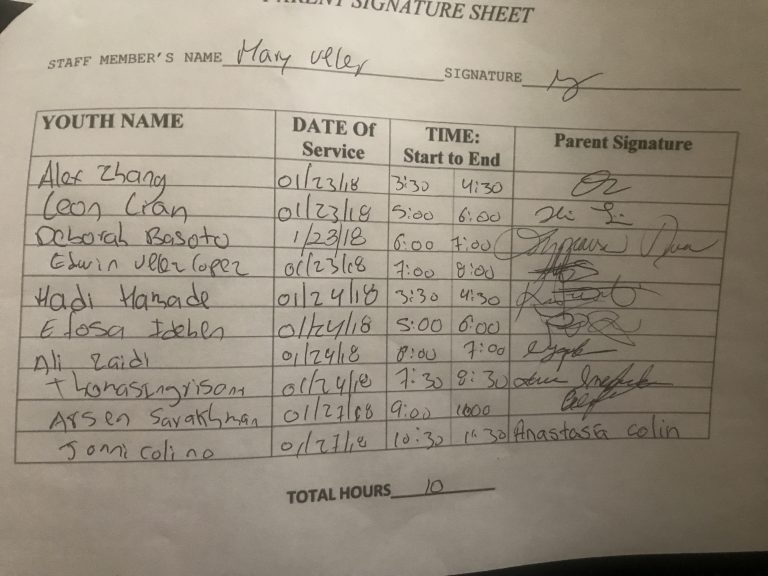 PARENT SIGNATURE SHEET
STAFF MEMBER'S NAME Mary Veler SIGNATURE
YOUTH NAME DATE Of Service TIME: Start to End Parent Signature
Alex Zhang 01/23/18 3:30 4:30
Leon Cran 01/23/18 5:00 6:00
Deborah Basoto 1/23/18 6:00 7:00
Edwin Velez Lopez 01/23/18 7:00 8:00
Hadi Hamade 01/24/18 3:30 4:30
Efosa Idehen 01/24/18 5:00 6:00
Ali Zaidi 01/24/18 7:00
01/24/18 7:30 8:30
Arsen 01/27/18 9:00 1000
Jomi colino 01/27/18 10:30 11:30 Anastasia colin
TOTAL HOURS 10